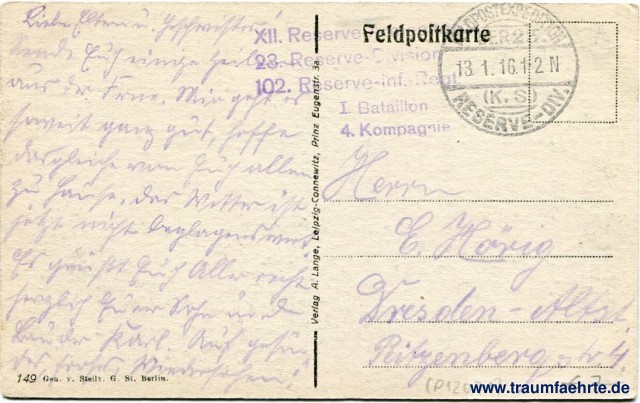 Liebe Eltern u. Geschwister!
Sende Euch einige Zeilen
aus der Ferne. Mir geht es
soweit ganz gut, hoffe
dasgleiche von Euch allen
zu Hause. Das Wetter ist
jetzt nicht beglagenswert
Es grüßt Euch Alle recht
herzlich Euer Sohn und
Bruder Karl. Auf gesun-
des frohes Wiedersehen!
149 Gen. v. Stellv. G. St. Berlin.
Verlag A. Lange, Leipzig-Connewitz, Prinz Eugenstr. 3a.
XII. Reserve
23. Reserve-Division
102. Reserve-Inf. Regt.
I. Bataillon
4. Kompagnie
Feldpostkarte
FELDPOSTEXPEDITION
DER 23.
13. 1. 16. 1-2 N
(K. S.)
RESERVE-DIV.
Herrn
E. Hörig
Dresden-Altst.
Ritzenberg str. 4.
www.traumfaehrte.de